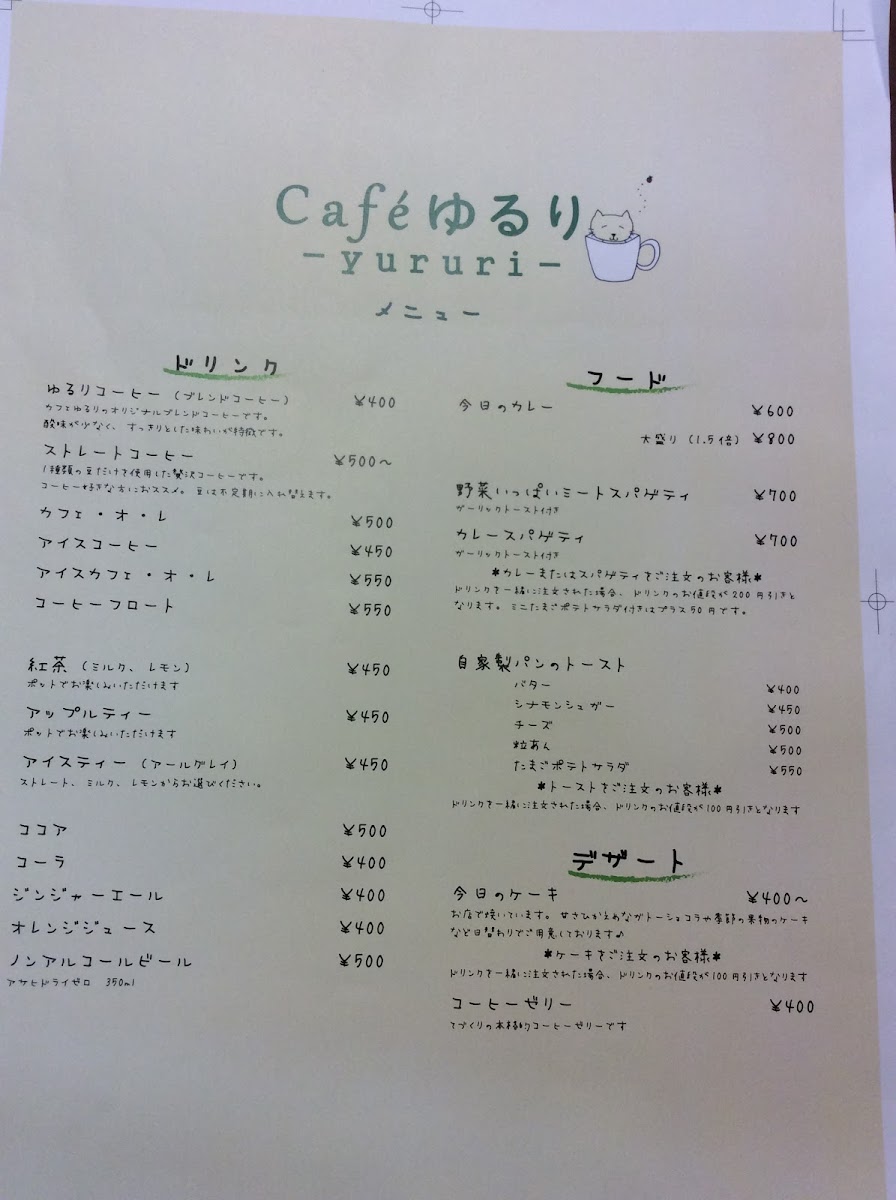 Caféゆるり
-yururi-
メニュー
ドリンク
ゆるりコーヒー (ブレンドコーヒー) ¥400
カフェゆるりのオリジナルブレンドコーヒーです。
酸味が少なく、すっきりとした味わいが特徴です。
ストレートコーヒー ¥500〜
1種類の豆だけを使用した贅沢コーヒーです。
コーヒー好きな方におススメ。豆は不定期に入れ替えます。
カフェ・オ・レ ¥500
アイスコーヒー ¥450
アイスカフェ・オ・レ ¥550
コーヒーフロート ¥550
紅茶 (ミルク、レモン) ¥450
ポットでお楽しみいただけます
アップルティー ¥450
ポットでお楽しみいただけます
アイスティー (アールグレイ) ¥450
ストレート、ミルク、レモンからお選びください。
ココア ¥500
コーラ ¥400
ジンジャーエール ¥400
オレンジジュース ¥400
ノンアルコールビール ¥500
アサヒドライゼロ 350ml
フード
今日のカレー ¥600
大盛り (1.5倍) ¥800
野菜いっぱいミートスパゲティ ¥700
ガーリックトースト付き
カレースパゲティ ¥700
ガーリックトースト付き
*カレーまたはスパゲティをご注文のお客様*
ドリンクを一緒に注文された場合、ドリンクのお値段が200円引きと
なります。ミニたまごポテトサラダ付きはプラス50円です。
自家製パンのトースト
バター ¥400
シナモンシュガー ¥450
チーズ ¥500
粒あん ¥500
たまごポテトサラダ ¥550
*トーストをご注文のお客様*
ドリンクを一緒に注文された場合、ドリンクのお値段が100円引きとなります
デザート
今日のケーキ ¥400〜
お店で焼いています。甘さひかえめなガトーショコラや季節の果物のケーキ
など日替わりでご用意しております♪
*ケーキをご注文のお客様*
ドリンクを一緒に注文された場合、ドリンクのお値段が100円引きとなります
コーヒーゼリー ¥400
てづくりの本格的コーヒーゼリーです